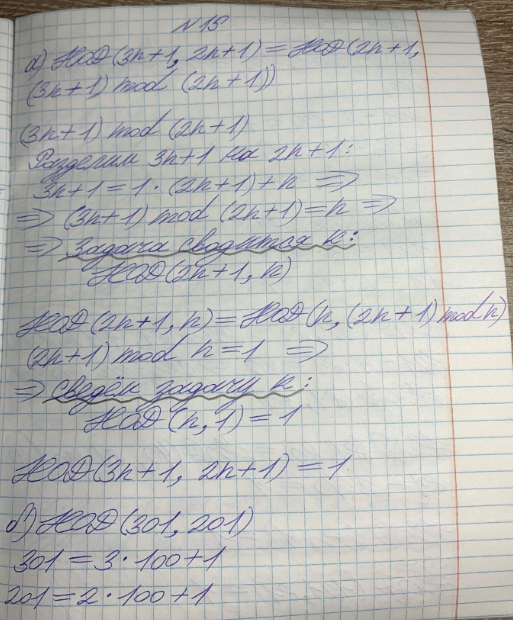 №18
а) НОД(3n+1, 2n+1) = НОД(2n+1,
(3n+1) mod (2n+1))
(3n+1) mod (2n+1)
Разделим 3n+1 на 2n+1:
3n+1 = 1·(2n+1)+n ⇒
⇒ (3n+1) mod (2n+1) = n ⇒
⇒ Задача сводится к:
НОД(2n+1, n)
НОД(2n+1, n) = НОД(n, (2n+1) mod n)
(2n+1) mod n = 1 ⇒
⇒ сведём задачу к:
НОД(n, 1) = 1
НОД(3n+1, 2n+1) = 1
б) НОД(301, 201)
301 = 3·100+1
201 = 2·100+1